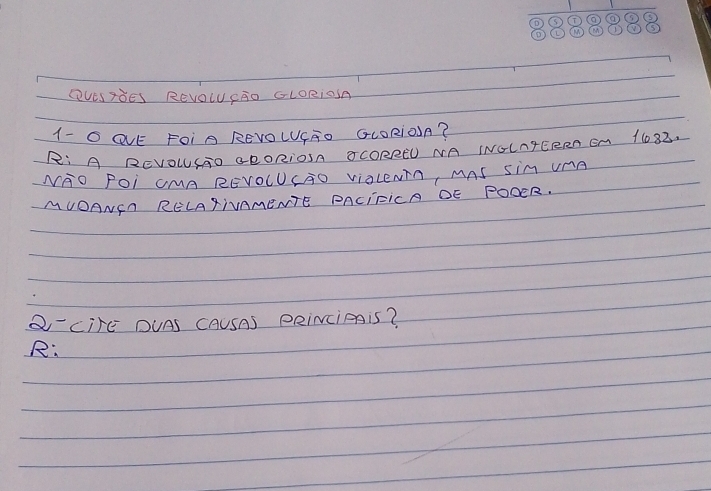 D S T Q Q S S
D L M M J V S
QUESTÕES REVOLUÇÃO GLORIOSA
1- O QUE FOI A REVOLUÇÃO GLORIOSA?
R: A REVOLUÇÃO GLORIOSA OCORREU NA INGLATERRA EM 1688.
NÃO FOI UMA REVOLUÇÃO VIOLENTA, MAS SIM UMA
MUDANÇA RELATIVAMENTE PACÍFICA DE PODER.
2- CITE DUAS CAUSAS PRINCIPAIS?
R: